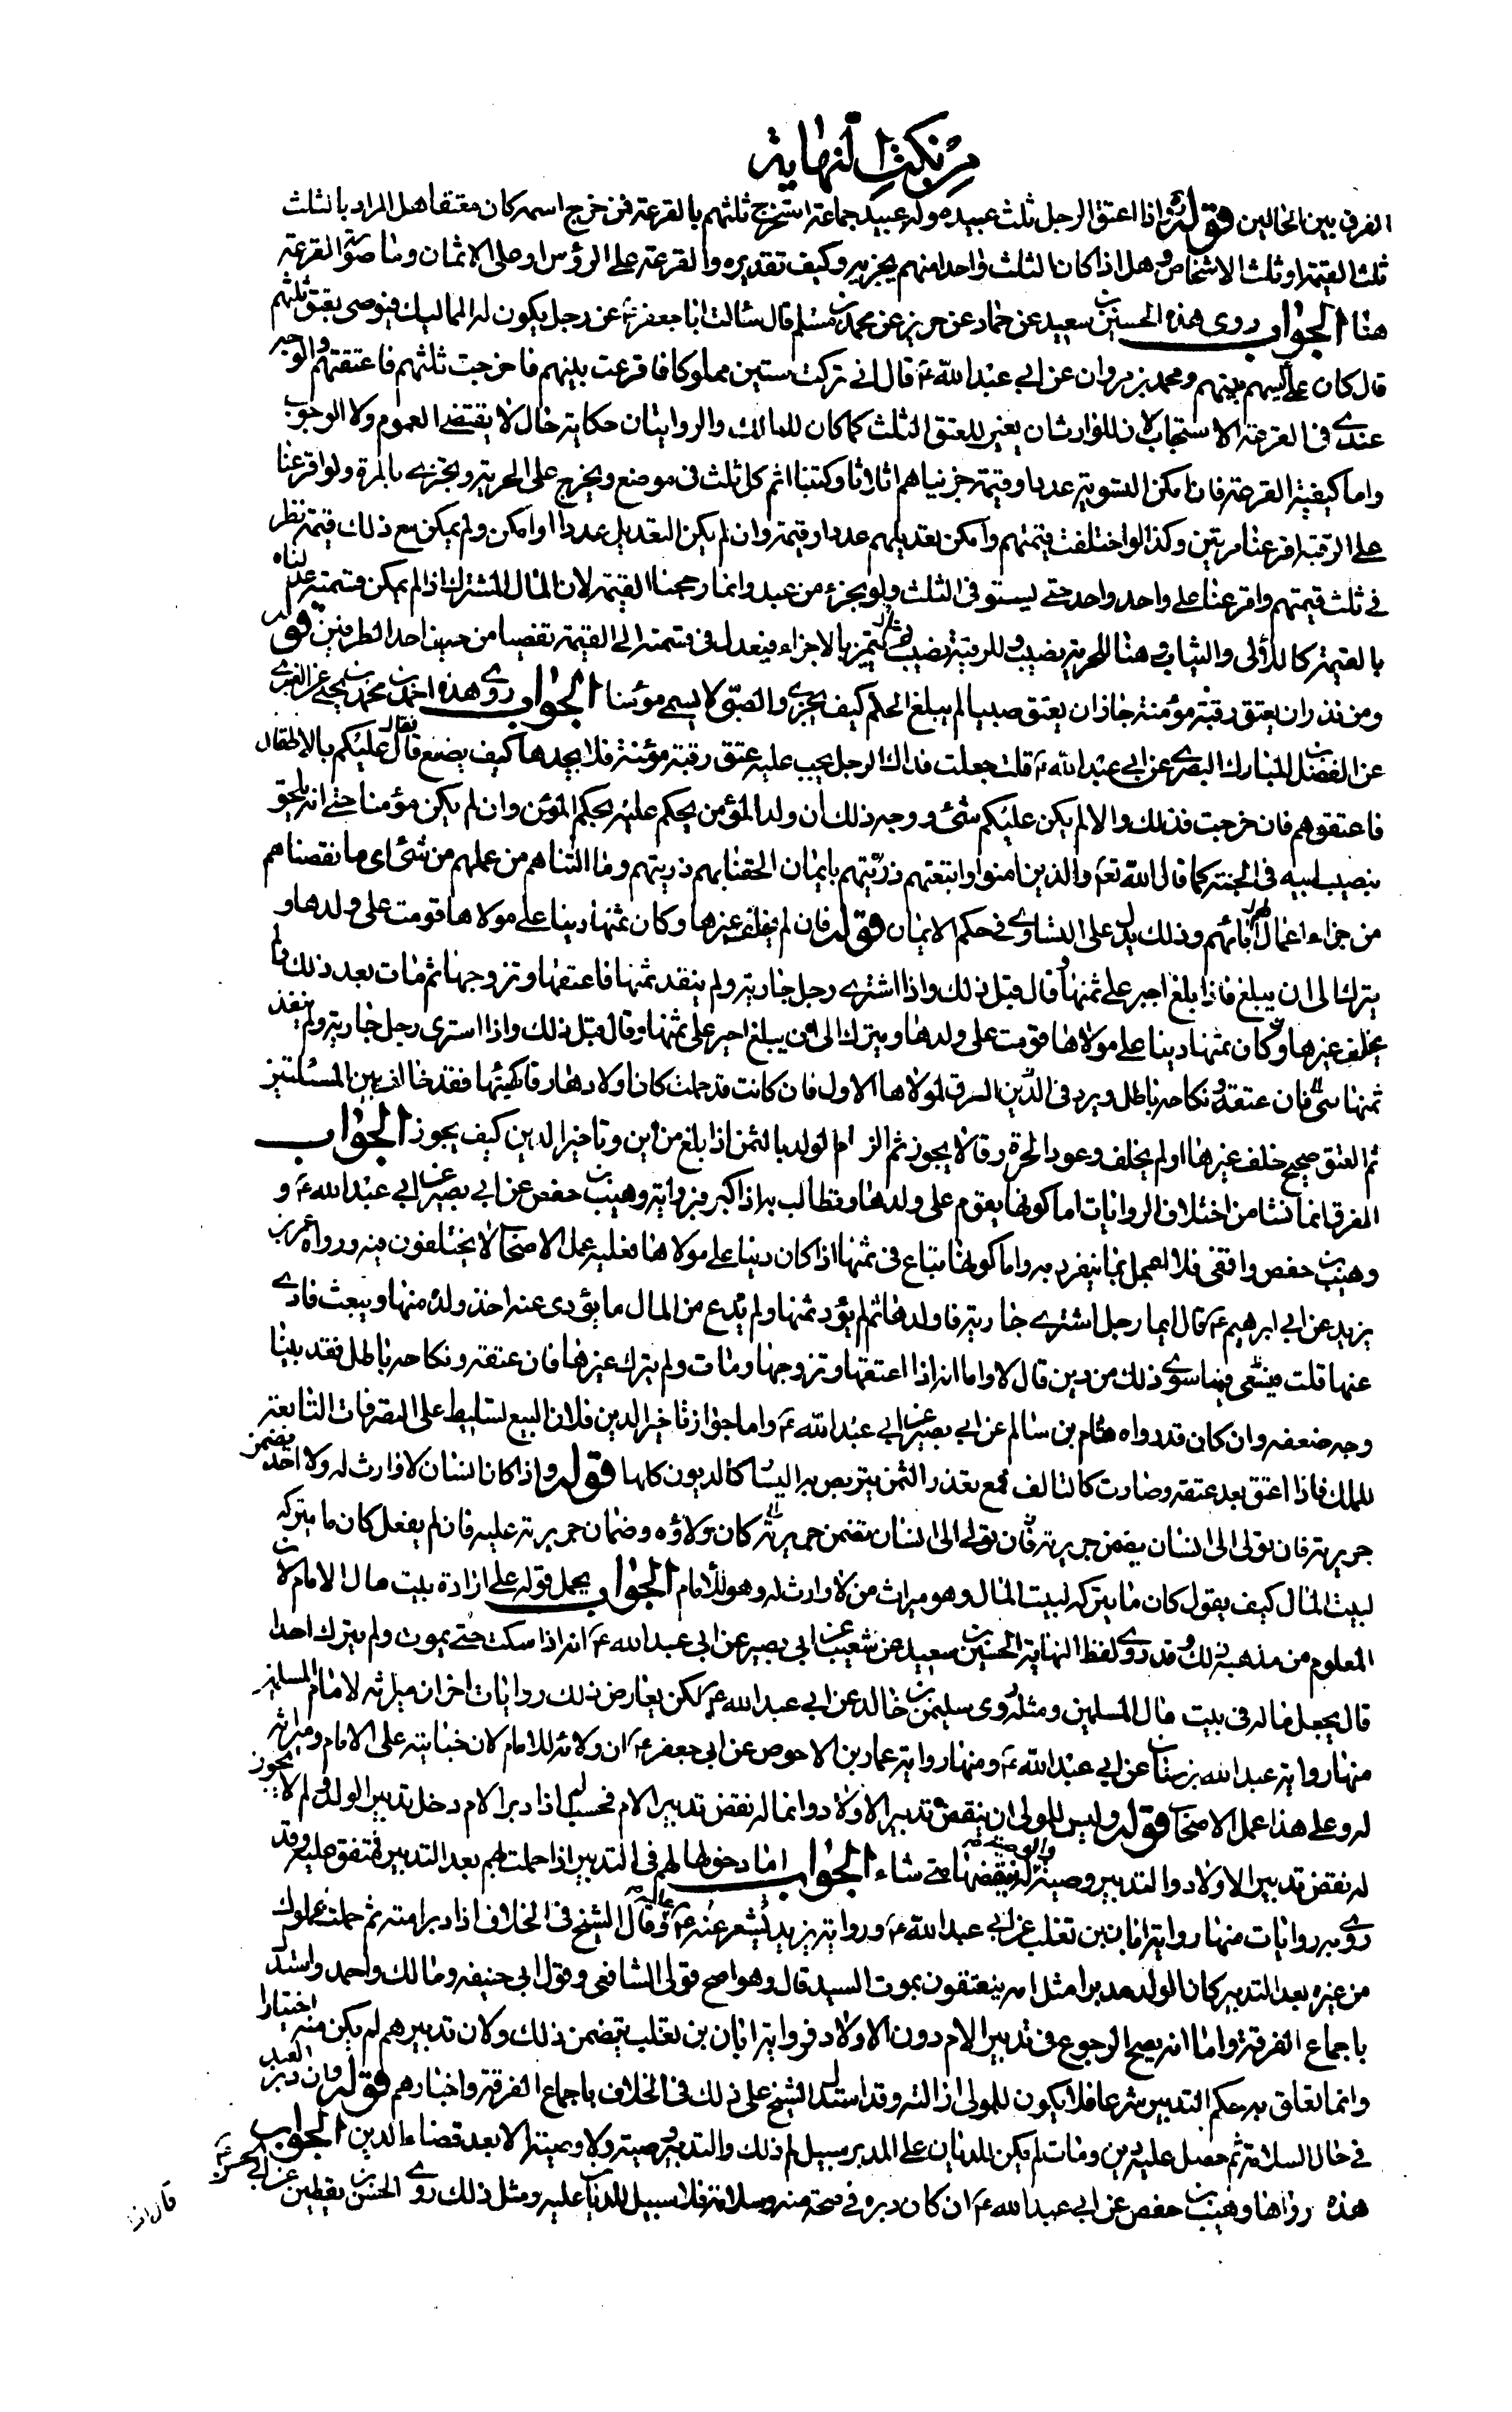 من نكت النهاية
الفرق بين الحالين قوله واذا اعتق الرجل ثلث عبيده وله عبيد جماعة استخرج ثلثهم بالقرعة فمن خرج اسمه كان معتقا هل المراد بالثلث
ثلث القيمة او ثلث الاشخاص وهل اذا كان الثلث واحدا منهم يجزيه وكيف تقديره والقرعة على الرؤس او على الاثمان وما صورة القرعة
هنا الجواب روى هذه الحسين بن سعيد عن حماد عن حريز عن محمد بن مسلم قال سالت ابا جعفر ع عن رجل يكون له المماليك فيوصى بعتق ثلثهم
قال كان علي يسهم بينهم ومحمد بن مروان عن ابي عبد الله ع قال اني تركت ستين مملوكا فاقرعت بينهم فاخرجت ثلثهم فاعتقتهم والوجه
عندي في القرعة الاستحباب لان للوارث ان يعين للعتق الثلث كما كان للمالك والروايتان حكاية حال لا يقتضي العموم ولا الوجوب
واما كيفية القرعة فان امكن التسوية عددا وقيمة جزيناهم اثلاثا وكتبنا اسم كل ثلث في موضع ويخرج على الحرية ويجزي بالمرة ولو اقرعنا
على الرقية اقرعنا مرتين وكذا لو اختلفت قيمتهم وامكن تعديلهم عددا وقيمة وان لم يكن التعديل عددا او امكن ولم يمكن مع ذلك قيمة نظر
في ثلث قيمتهم واقرعنا على واحد واحد حتى يستوفى الثلث ولو بجزء من عبد وانما رجحنا القيمة لان المال المشترك اذا لم يمكن قسمته عدلناه
بالقيمة كاللؤلى والثياب وهنا للحرية نصيب وللرقية نصيب لم يتميز بالاجزاء فيعدل في قسمته الى القيمة تفصيا من حيف احد الطرفين قوله
ومن نذر ان يعتق رقبة مؤمنة جاز ان يعتق صبيا لم يبلغ الحلم كيف يجزي والصبي لا يسمى مؤمنا الجواب روى هذه احمد بن محمد بن يحيى عن العمركي
عن الفضل بن المبارك البصري عن ابي عبد الله ع قلت جعلت فداك الرجل يجب عليه عتق رقبة مؤمنة فلا يجدها كيف يصنع قال فقال عليكم بالاطفال
فاعتقوهم فان خرجت فذلك والا لم يكن عليكم شئ ووجه ذلك ان ولد المؤمن يحكم عليه بحكم المؤمن وان لم يكن مؤمنا حتى انه يلحق
بنصيب ابيه في الجنة كما قال الله تع والذين امنوا واتبعتهم ذريتهم بايمان الحقنا بهم ذريتهم وما التناهم من عملهم من شئ اى ما نقصناهم
من جزاء اعمال ابائهم وذلك يدل على التساوي في حكم الايمان قوله فان لم يخلف غيرها وكان ثمنها دينا على مولاها قومت على ولدها و
يترك الى ان يبلغ فاذا بلغ اجبر على ثمنها وقال قبل ذلك واذا اشترى رجل جارية ولم ينقد ثمنها فاعتقها وتزوجها ثم مات بعد ذلك ولم
يخلف غيرها وكان ثمنها دينا على مولاها قومت على ولدها ويترك الى ان يبلغ اجبر على ثمنها وقال قبل ذلك واذا اشترى رجل جارية ولم ينقد
ثمنها شئ فان عتقه ونكاحه باطل ويرد في الدين السرق لمولاها الاول فان كانت قد حملت كان اولادها رقا كهيئتها فقد خالف بين المسئلتين
ثم العتق صحيح خلف غيرها او لم يخلف وعود الحرة رقا لا يجوز ثم الزام الولد بالثمن اذا بلغ من اين وتاخير الدين كيف يجوز الجواب
الفرق انما نشا من اختلاف الروايات اما كونها يقوم على ولدها وتطالب به اذا كبر فبرواية وهيب بن حفص عن ابي بصير عن ابي عبد الله ع و
وهيب بن حفص واقفي فلا العمل بما ينفرد به واما كونها تباع في ثمنها اذا كان دينا على مولاها فعليه عمل الاصحاب لا يختلفون فيه ورواه عمر بن
يزيد عن ابي ابرهيم ع قال ايما رجل اشترى جارية فاولدها ثم لم يؤد ثمنها ولم يدع من المال ما يؤدى عنه اخذ ولده منها وبيعت فادى
عنها قلت فيبتغى فيما سوى ذلك من دين قال لا واما انه اذا اعتقها وتزوجها ومات ولم يترك غيرها فان عتقه ونكاحه باطل فقد بينا
وجه ضعفه وان كان قد رواه هشام بن سالم عن ابي بصير عن ابي عبد الله ع واما جواز تاخير الدين فلان البيع تسليط على التصرفات التابعة
للملك فاذا اعتق بعد عتقه وصارت كالتالف فمع تعذر الثمن يتربص به اليسار كالديون كلها قوله واذا كان انسان لا وارث له ولا احد يضمن
جريرته فان توالى الى انسان يضمن جريرته فان توالى الى انسان تضمن جريرته كان ولاؤه وضمان جريرته عليه فان لم يفعل كان ما يتركه
لبيت المال كيف يقول كان ما يتركه لبيت المال وهو ميراث من لا وارث له وهو للامام الجواب يحمل قوله على ارادة بيت مال الامام لان
المعلوم من مذهبه ذلك وقد روى لفظ النهاية الحسين بن سعيد عن شعيب عن ابي بصير عن ابي عبد الله ع انه اذا سكت حتى يموت ولم يترك احدا
قال يجعل ماله في بيت مال المسلمين ومثله روى سليمن بن خالد عن ابي عبد الله ع لكن يعارض ذلك روايات اخر ان ميراثه لامام المسلمين
منها رواية عبد الله بن سنان عن ابي عبد الله ع ومنها رواية عمار بن الاحوص عن ابي جعفر ع ان ولائه للامام لان جنايته على الامام وميراثه
له وعلى هذا عمل الاصحاب قوله وليس للمولى ان ينقض تدبير الاولاد وانما له نقض تدبير الام فحسب اذا دبر الام دخل تدبير الولد فلم لا يجوز
له نقض تدبير الاولاد والتدبير وصية والوصية له نقضها متى شاء الجواب اما دخولها لهم في التدبير اذا حملت بهم بعد التدبير فمتفق عليه وقد
روى به روايات منها رواية ابان بن تغلب عن ابي عبد الله ع ورواية يزيد بن شعر عنه ع وقال الشيخ في الخلاف اذا دبر امته ثم حملت بمملوك
من غيره بعد التدبير كان الولد مدبرا مثل امه ينعتقون بموت السيد قال وهو اصح قولى الشافعي وقول ابي حنيفة ومالك واحمد واستدل
باجماع الفرقة واما انه يصح الرجوع في تدبير الام دون الاولاد فرواية ابان بن تغلب يتضمن ذلك ولان تدبيرهم لم يكن منه اختيارا
وانما تعلق به حكم التدبير شرعا فلا يكون للمولى ازالته وقد استدل الشيخ على ذلك في الخلاف باجماع الفرقة واخبارهم قوله وان دبر العبد
في حال السلامة ثم حصل عليه دين ومات لم يكن للديان على المدبر سبيل لم ذلك والتدبير وصية ولا وصية الا بعد قضاء الدين الجواب
هذه رواها وهيب بن حفص عن ابي عبد الله ع ان كان دبره في صحة منه وسلامة فلا سبيل للديان عليه ومثل ذلك روى الحسن بن يقطين عن ابي الحسن ع